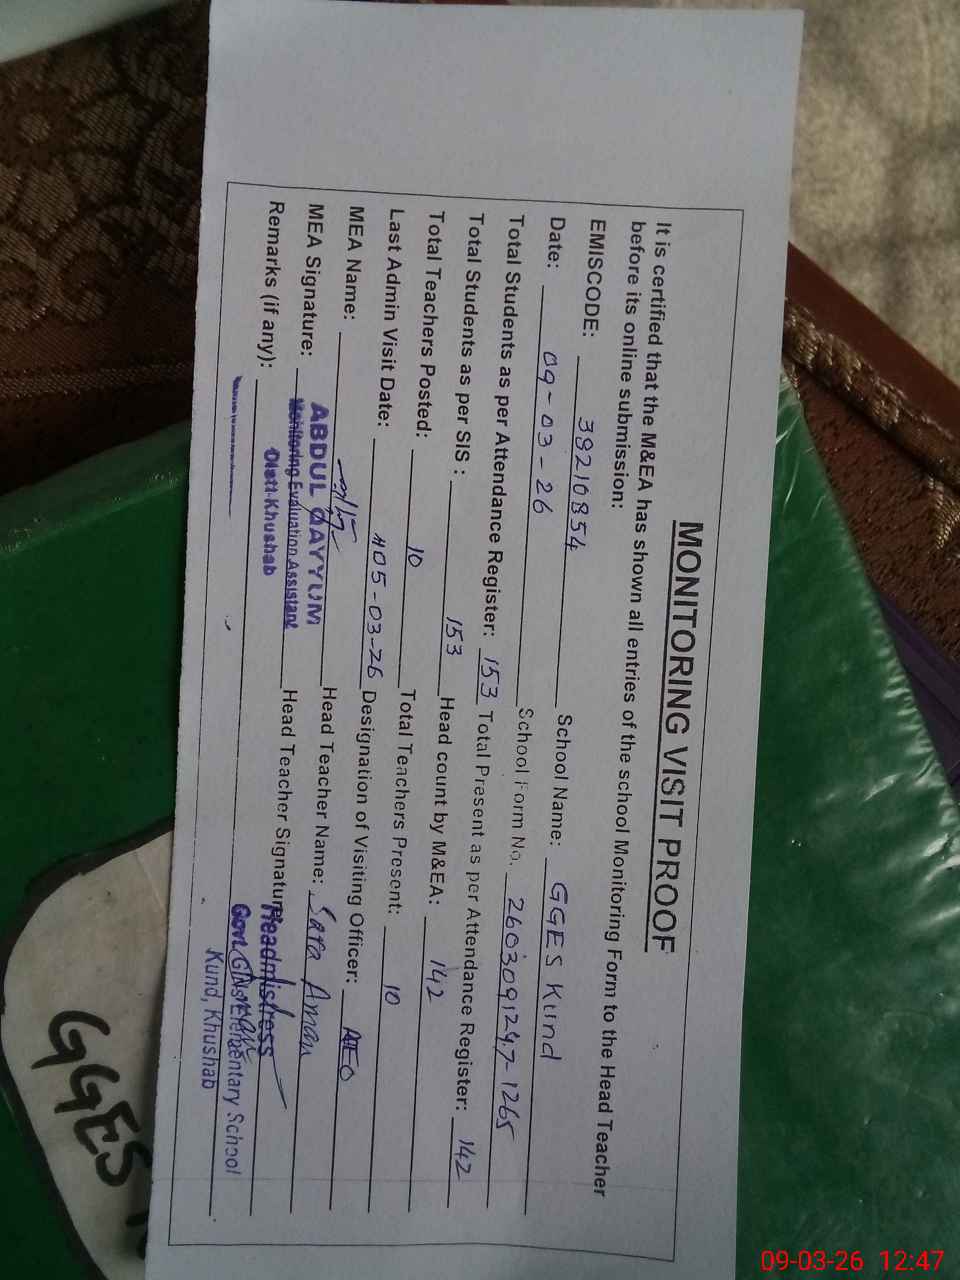 MONITORING VISIT PROOF
It is certified that the M&EA has shown all entries of the school Monitoring Form to the Head Teacher
before its online submission:
EMISCODE: 38210854 School Name: GGES Kund
Date: 09-03-26 School Form No. 2603091247-1265
Total Students as per Attendance Register: 153 Total Present as per Attendance Register: 142
Total Students as per SIS : 153 Head count by M&EA: 142
Total Teachers Posted: 10 Total Teachers Present: 10
Last Admin Visit Date: 05-03-26 Designation of Visiting Officer: AEO
MEA Name: Head Teacher Name: Sara Aman
MEA Signature: Head Teacher Signature:
ABDUL QAYYUM
Monitoring Evaluation Assistant
Distt-Khushab
Remarks (if any):
Headmistress
Govt. Girls Elementary School
Kund, Khushab
GGES
09-03-26 12:47